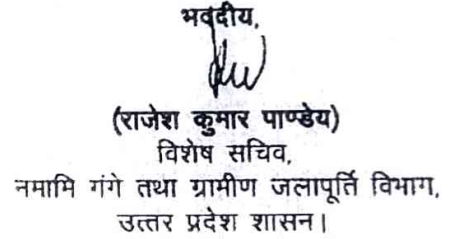 भवदीय,
(राजेश कुमार पाण्डेय)
विशेष सचिव,
नमामि गंगे तथा ग्रामीण जलापूर्ति विभाग,
उत्तर प्रदेश शासन।